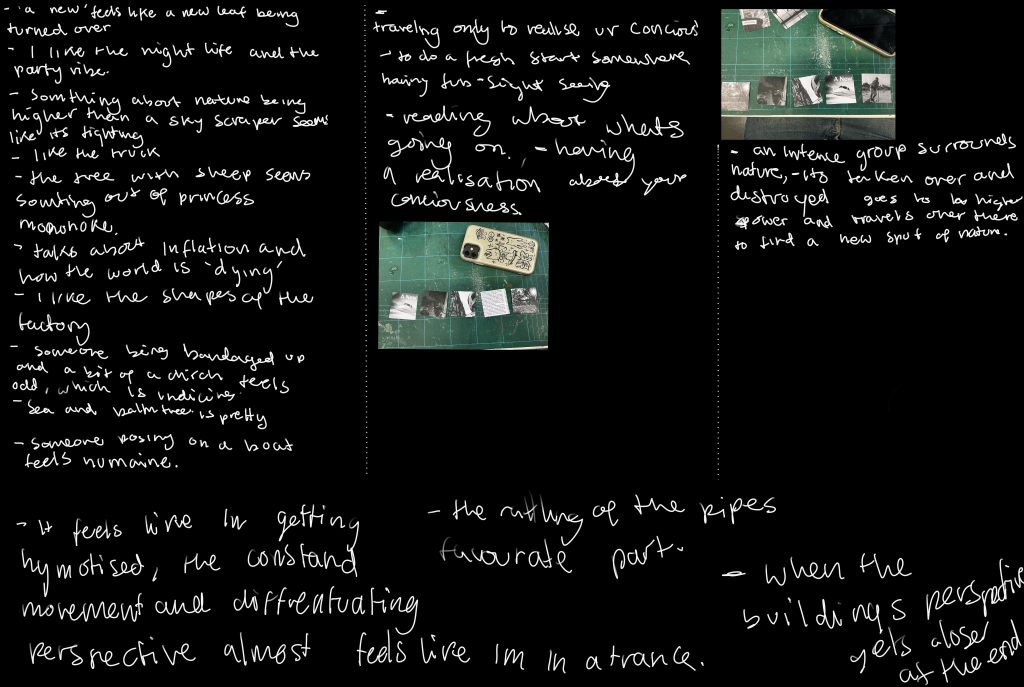 - a new feels like a new leaf being
turned over
- I like the night life and the
party vibe.
- Somthing about nature being
higher than a sky scraper seems
like its fighting
- like the truck
- the tree with sheep seems
somting out of princess
monohoke.
- talks about Inflation and
how the world is 'dying'
- I like the shapes of the
factory
- someone being bandaged up
and a bit of a
odd, which is
feels
- Sea and palm tree is pretty
- Someone posing on a boat
feels humaine.
-
traveling only to realise ur concious
- to do a fresh start somewhere
having fun - sight seeing
- reading about whats
going on, - having
a realisation about your
conciousness.
- an intense group surrounds
nature, - its taken over and
destroyed goes to be higher
power and travels over there
to find a new spot of nature.
- It feels like Im getting
hymotised, the constand
movement and diffrentuating
perspective almost feels like Im in a trance.
- the rattling of the pipes
favourate part.
- when the
buildings perspective
gets closer
at the end